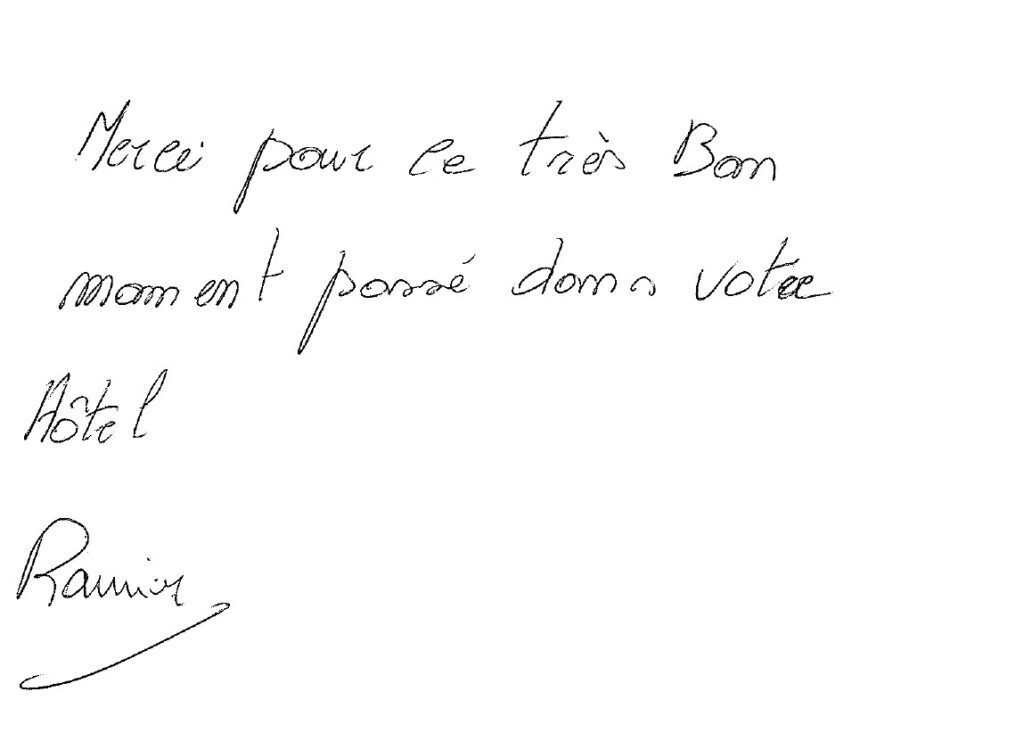 Merci pour ce très Bon
moment passé dans votre
Hôtel